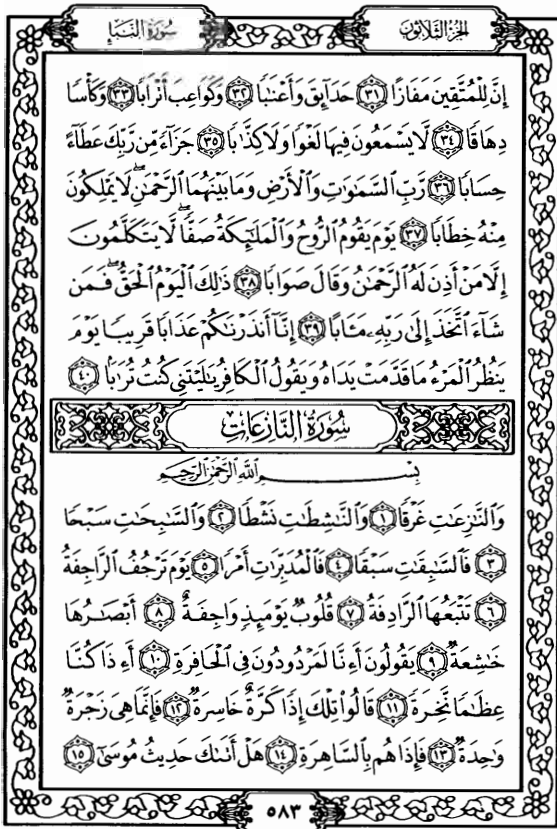 الجزء الثلاثون
سورة النبإ
إِنَّ لِلْمُتَّقِينَ مَفَازًا ٣١ حَدَآئِقَ وَأَعْنَٰبًا ٣٢ وَكَوَاعِبَ أَتْرَابًا ٣٣ وَكَأْسًا
دِهَاقًا ٣٤ لَّا يَسْمَعُونَ فِيهَا لَغْوًا وَلَا كِذَّٰبًا ٣٥ جَزَآءً مِّن رَّبِّكَ عَطَآءً
حِسَابًا ٣٦ رَّبِّ ٱلسَّمَٰوَٰتِ وَٱلْأَرْضِ وَمَا بَيْنَهُمَا ٱلرَّحْمَٰنِ ۖ لَا يَمْلِكُونَ
مِنْهُ خِطَابًا ٣٧ يَوْمَ يَقُومُ ٱلرُّوحُ وَٱلْمَلَٰٓئِكَةُ صَفًّا ۖ لَّا يَتَكَلَّمُونَ
إِلَّا مَنْ أَذِنَ لَهُ ٱلرَّحْمَٰنُ وَقَالَ صَوَابًا ٣٨ ذَٰلِكَ ٱلْيَوْمُ ٱلْحَقُّ ۖ فَمَن
شَآءَ ٱتَّخَذَ إِلَىٰ رَبِّهِۦ مَـَٔابًا ٣٩ إِنَّآ أَنذَرْنَٰكُمْ عَذَابًا قَرِيبًا يَوْمَ
يَنظُرُ ٱلْمَرْءُ مَا قَدَّمَتْ يَدَاهُ وَيَقُولُ ٱلْكَافِرُ يَٰلَيْتَنِى كُنتُ تُرَٰبًۢا ٤٠
سورة النازعات
بسم الله الرحمن الرحيم
وَٱلنَّٰزِعَٰتِ غَرْقًا ١ وَٱلنَّٰشِطَٰتِ نَشْطًا ٢ وَٱلسَّٰبِحَٰتِ سَبْحًا
٣ فَٱلسَّٰبِقَٰتِ سَبْقًا ٤ فَٱلْمُدَبِّرَٰتِ أَمْرًا ٥ يَوْمَ تَرْجُفُ ٱلرَّاجِفَةُ
٦ تَتْبَعُهَا ٱلرَّادِفَةُ ٧ قُلُوبٌ يَوْمَئِذٍ وَاجِفَةٌ ٨ أَبْصَٰرُهَا
خَٰشِعَةٌ ٩ يَقُولُونَ أَءِنَّا لَمَرْدُودُونَ فِى ٱلْحَافِرَةِ ١٠ أَءِذَا كُنَّا
عِظَٰمًا نَّخِرَةً ١١ قَالُوا۟ تِلْكَ إِذًا كَرَّةٌ خَاسِرَةٌ ١٢ فَإِنَّمَا هِىَ زَجْرَةٌ
وَٰحِدَةٌ ١٣ فَإِذَا هُم بِٱلسَّاهِرَةِ ١٤ هَلْ أَتَىٰكَ حَدِيثُ مُوسَىٰٓ ١٥
٥٨٣